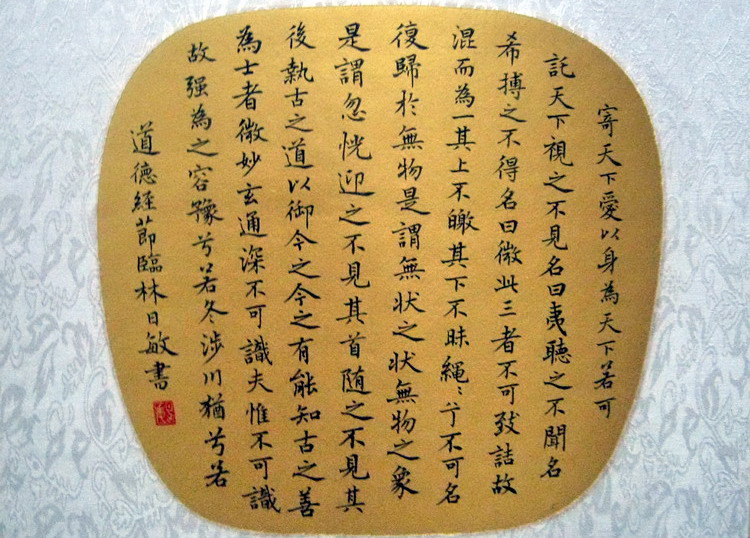 寄天下愛以身為天下若可
託天下視之不見名曰夷聽之不聞名
希搏之不得名曰微此三者不可致詰故
混而為一其上不皦其下不昧繩〻兮不可名
復歸於無物是謂無状之状無物之象
是謂忽恍迎之不見其首随之不見其
後執古之道以御今之今之有能知古之善
為士者微妙玄通深不可識夫惟不可識
故强為之容豫兮若冬涉川猶兮若
道德經節臨林日敏書